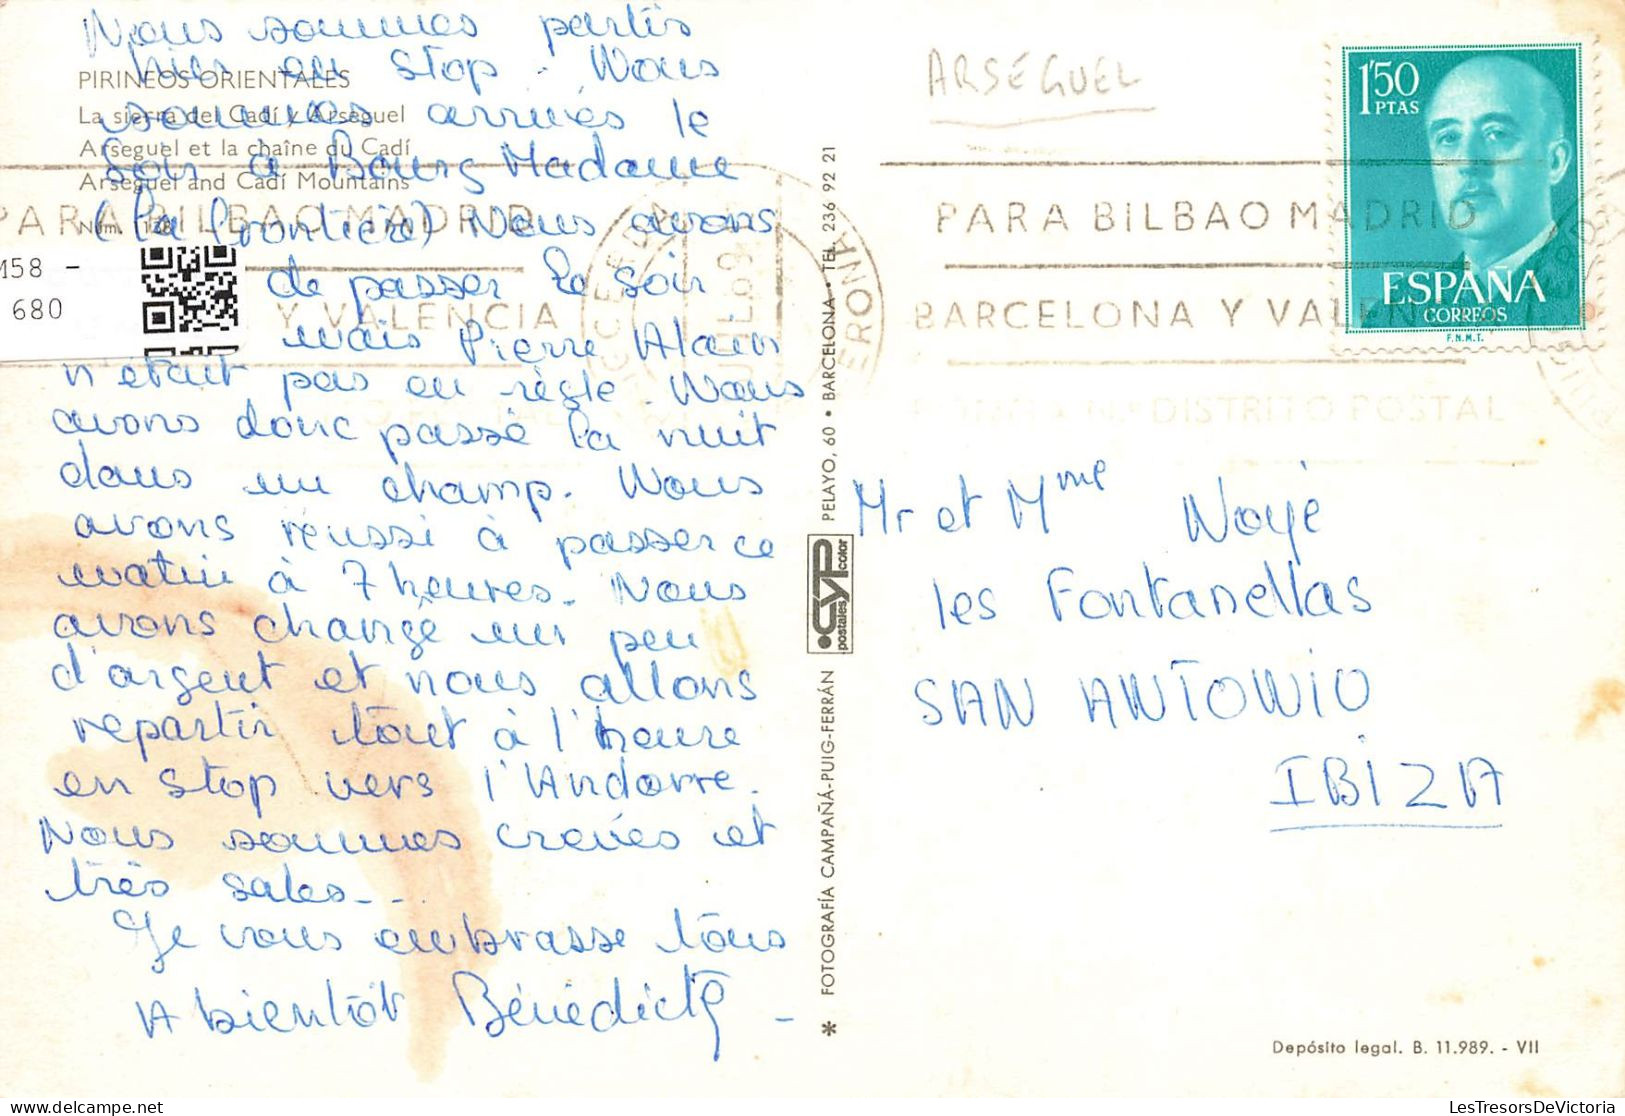 Nous sommes partis
hier en stop. Nous
sommes arrivés le
soir à Bourg Madame
(la frontière) Nous avons
de passer le soir
mais Pierre Alain
n'était pas en règle. Nous
avons donc passé la nuit
dans un champ. Nous
avons réussi à passer ce
matin à 7 heures. Nous
avons changé un peu
d'argent et nous allons
repartir tout à l'heure
en stop vers l'Andorre.
Nous sommes crevés et
très sales...
Je vous embrasse tous
A bientôt Bénédicte
PIRINEOS ORIENTALES
La sierra del Cadí y Arseguel
Arseguel et la chaîne du Cadí
Arseguel and Cadí Mountains
Núm. 138
M58 -
680
PARA BILBAO MADRID
Y VALENCIA
* FOTOGRAFÍA CAMPAÑÁ-PUIG-FERRÁN
CYP
postales color
PELAYO, 60 • BARCELONA • TEL. 236 92 21
ARSÉGUEL
GERONA
PARA BILBAO MADRID
BARCELONA Y VALENCIA
DISTRITO POSTAL
1'50
PTAS
ESPAÑA
CORREOS
F.N.M.T.
Mr et Mme Noyé
les Fontanellas
SAN ANTONIO
IBIZA
Depósito legal. B. 11.989. - VII
LesTresorsDeVictoria